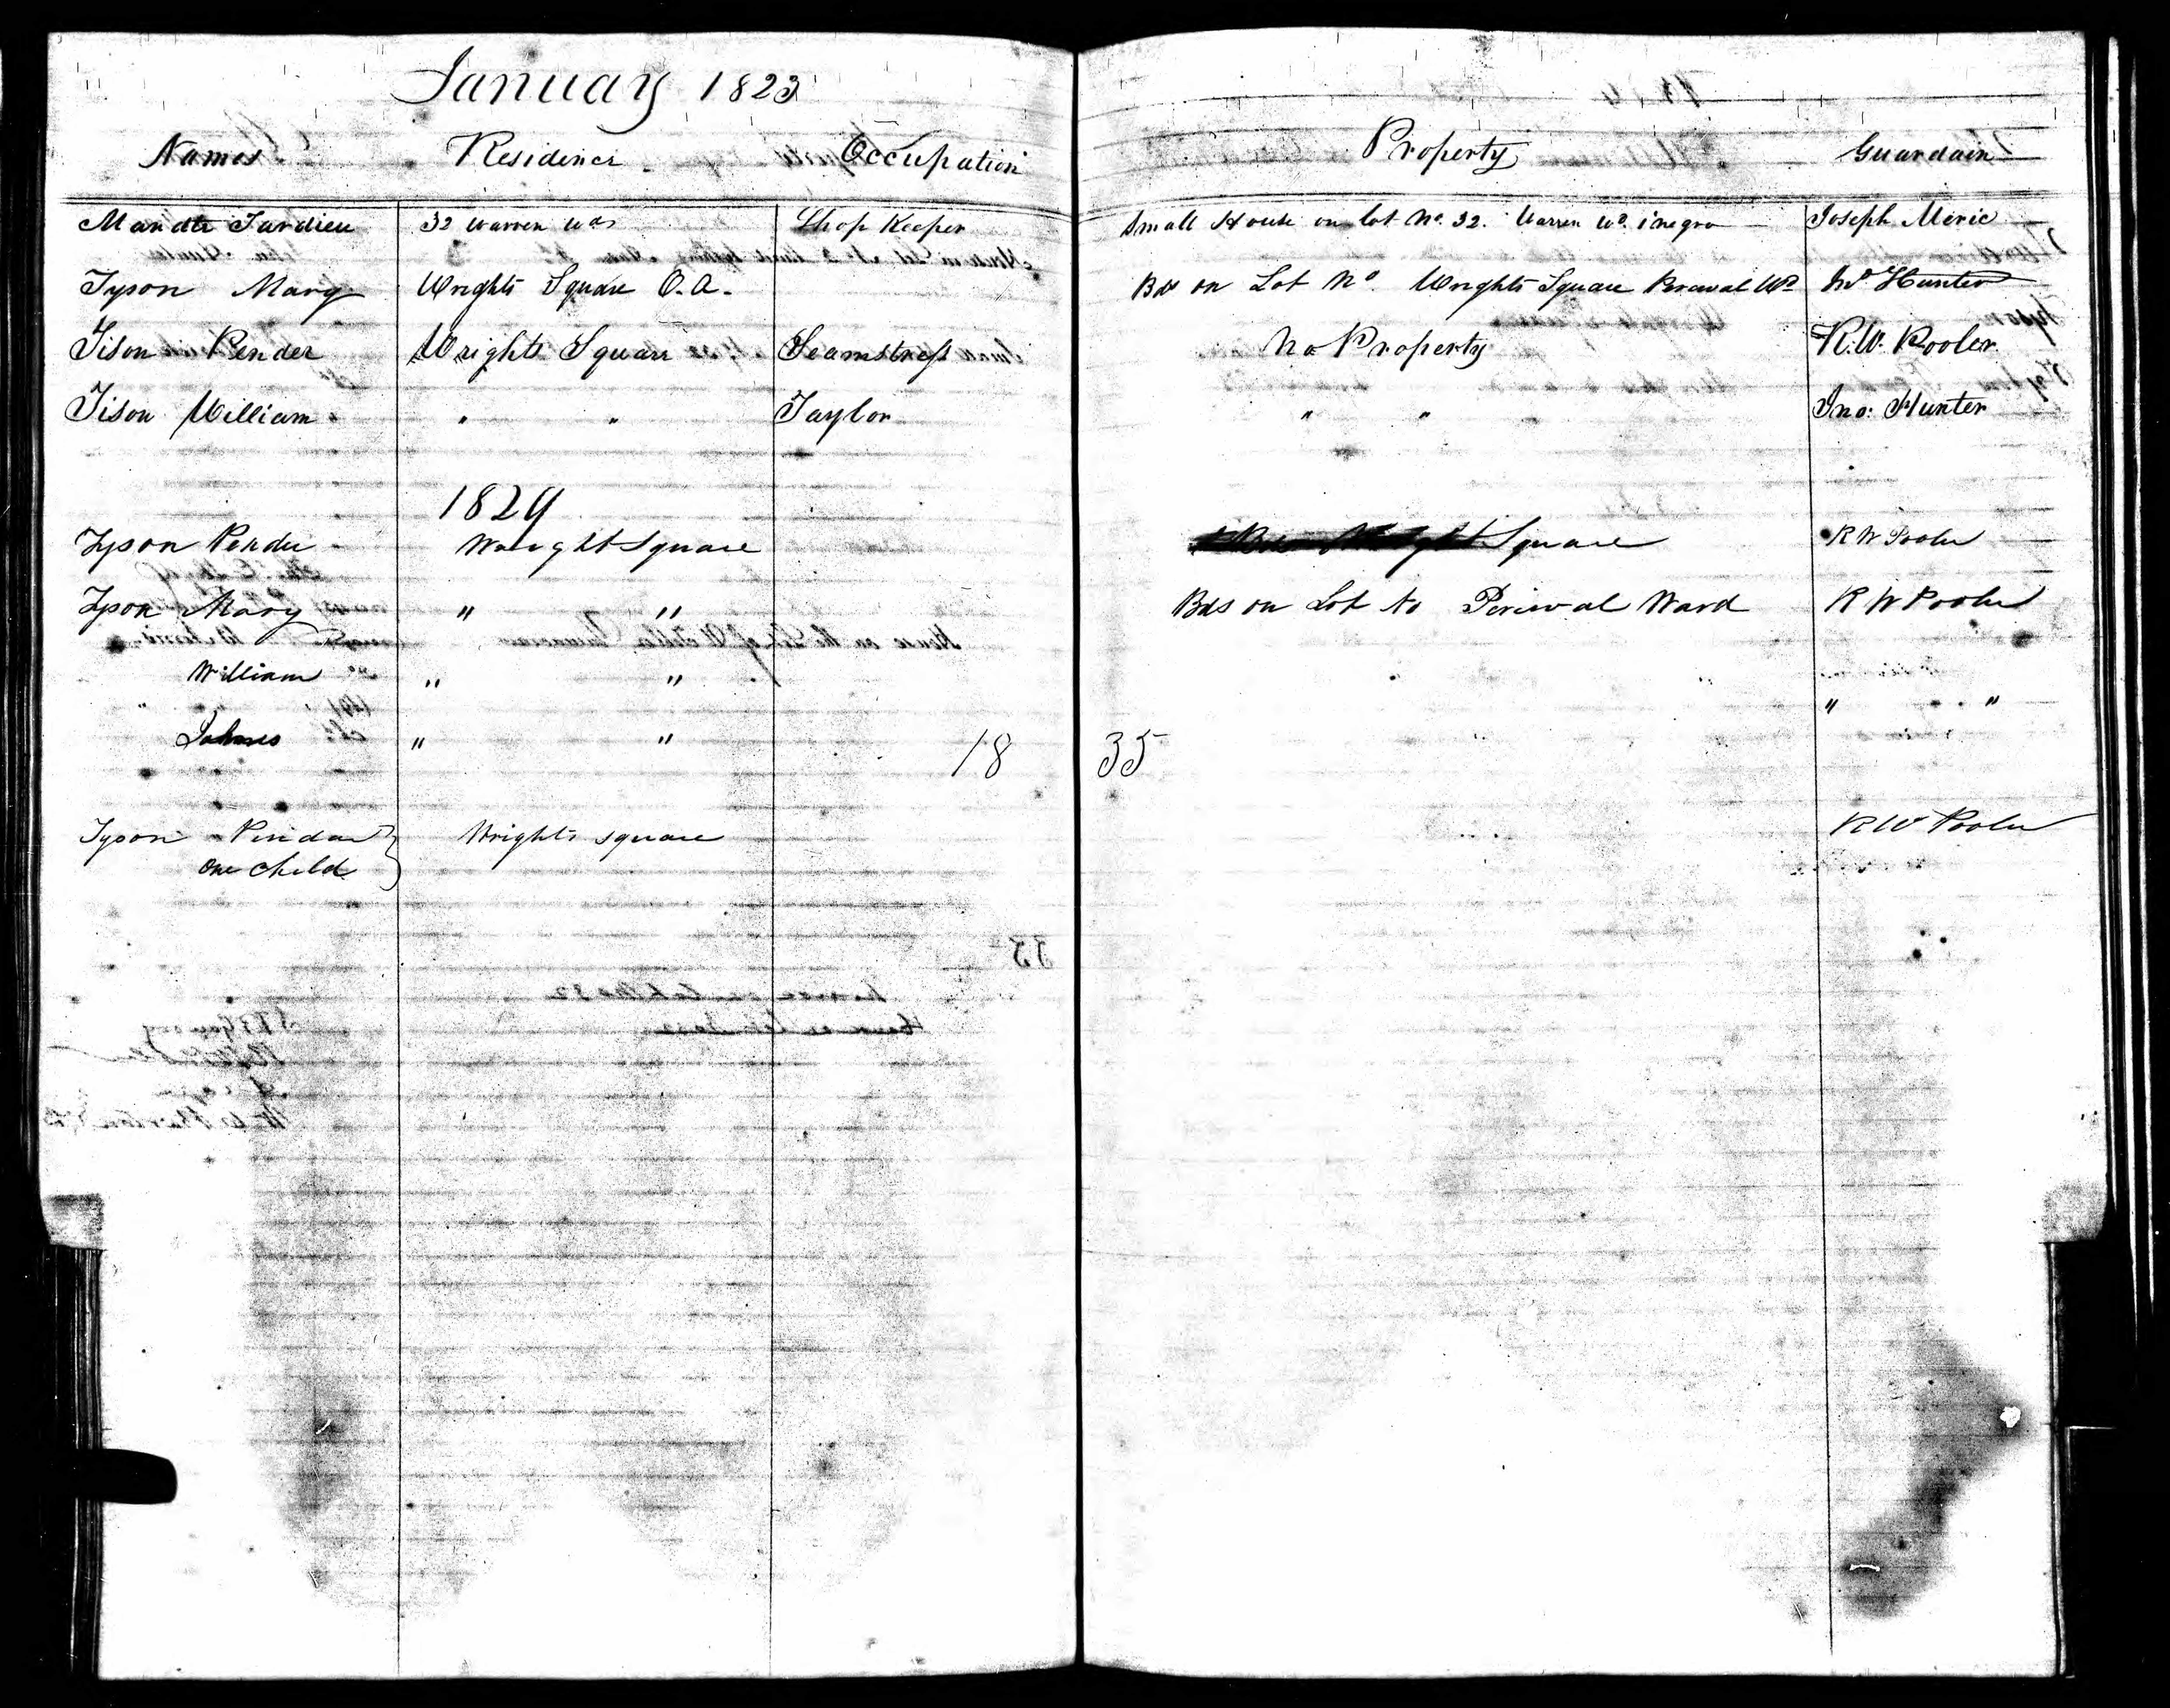 January 1823
Names Residence Occupation Property Guardain
Mandte Tardieu 32 Warren Wd Shop Keeper Small House on lot No. 32. Warren Wd. 1 negro Joseph Meric
Tyson Mary Wrights Square O. A. Bds on Lot No. Wrights Square Percival Wd Jno Hunter
Tison Pender Wrights Square Seamstress No Property R.W. Pooler
Tison William " " Taylor " " Jno: Hunter
1829
Tyson Pender Wright Square Square R W Pooler
Tyson Mary " " Bds on Lot No Percival Ward R W Pooler
William do " "
" "
" "
18 35
Tyson Pindar Wrights square R W Pooler
one child